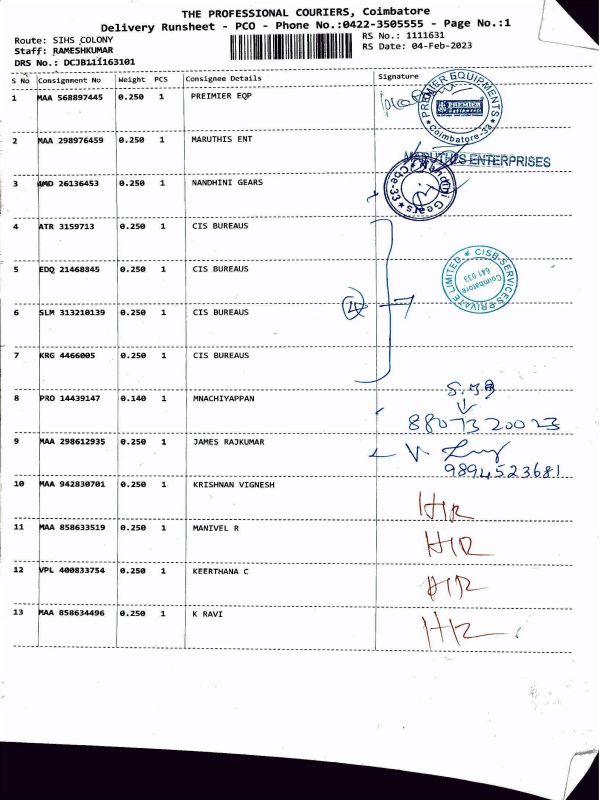 THE PROFESSIONAL COURIERS, Coimbatore
Delivery Runsheet - PCO - Phone No.:0422-3505555 - Page No.:1
Route: SIHS COLONY
RS No.: 1111631
Staff: RAMESHKUMAR
RS Date: 04-Feb-2023
DRS No.: DCJB111163101
S No Consignment No Weight PCS Consignee Details Signature
1 MAA 568897445 0.250 1 PREIMIER EQP
PREMIER EQUIPMENTS
PREMIER
Coimbatore-33
2 MAA 298976459 0.250 1 MARUTHIS ENT
MARUTHIS ENTERPRISES
3 AMD 26136453 0.250 1 NANDHINI GEARS
Nandhini Gears Cbe-33
4 ATR 3159713 0.250 1 CIS BUREAUS
5 EDQ 21468845 0.250 1 CIS BUREAUS
CISB SERVICES PRIVATE LIMITED
Coimbatore
641 033
6 SLM 313210139 0.250 1 CIS BUREAUS
4
7 KRG 4466005 0.250 1 CIS BUREAUS
8 PRO 14439147 0.140 1 MNACHIYAPPAN
8807320023
9 MAA 298612935 0.250 1 JAMES RAJKUMAR
9894523681
10 MAA 942830701 0.250 1 KRISHNAN VIGNESH
11 MAA 858633519 0.250 1 MANIVEL R
12 VPL 400833754 0.250 1 KEERTHANA C
13 MAA 858634496 0.250 1 K RAVI